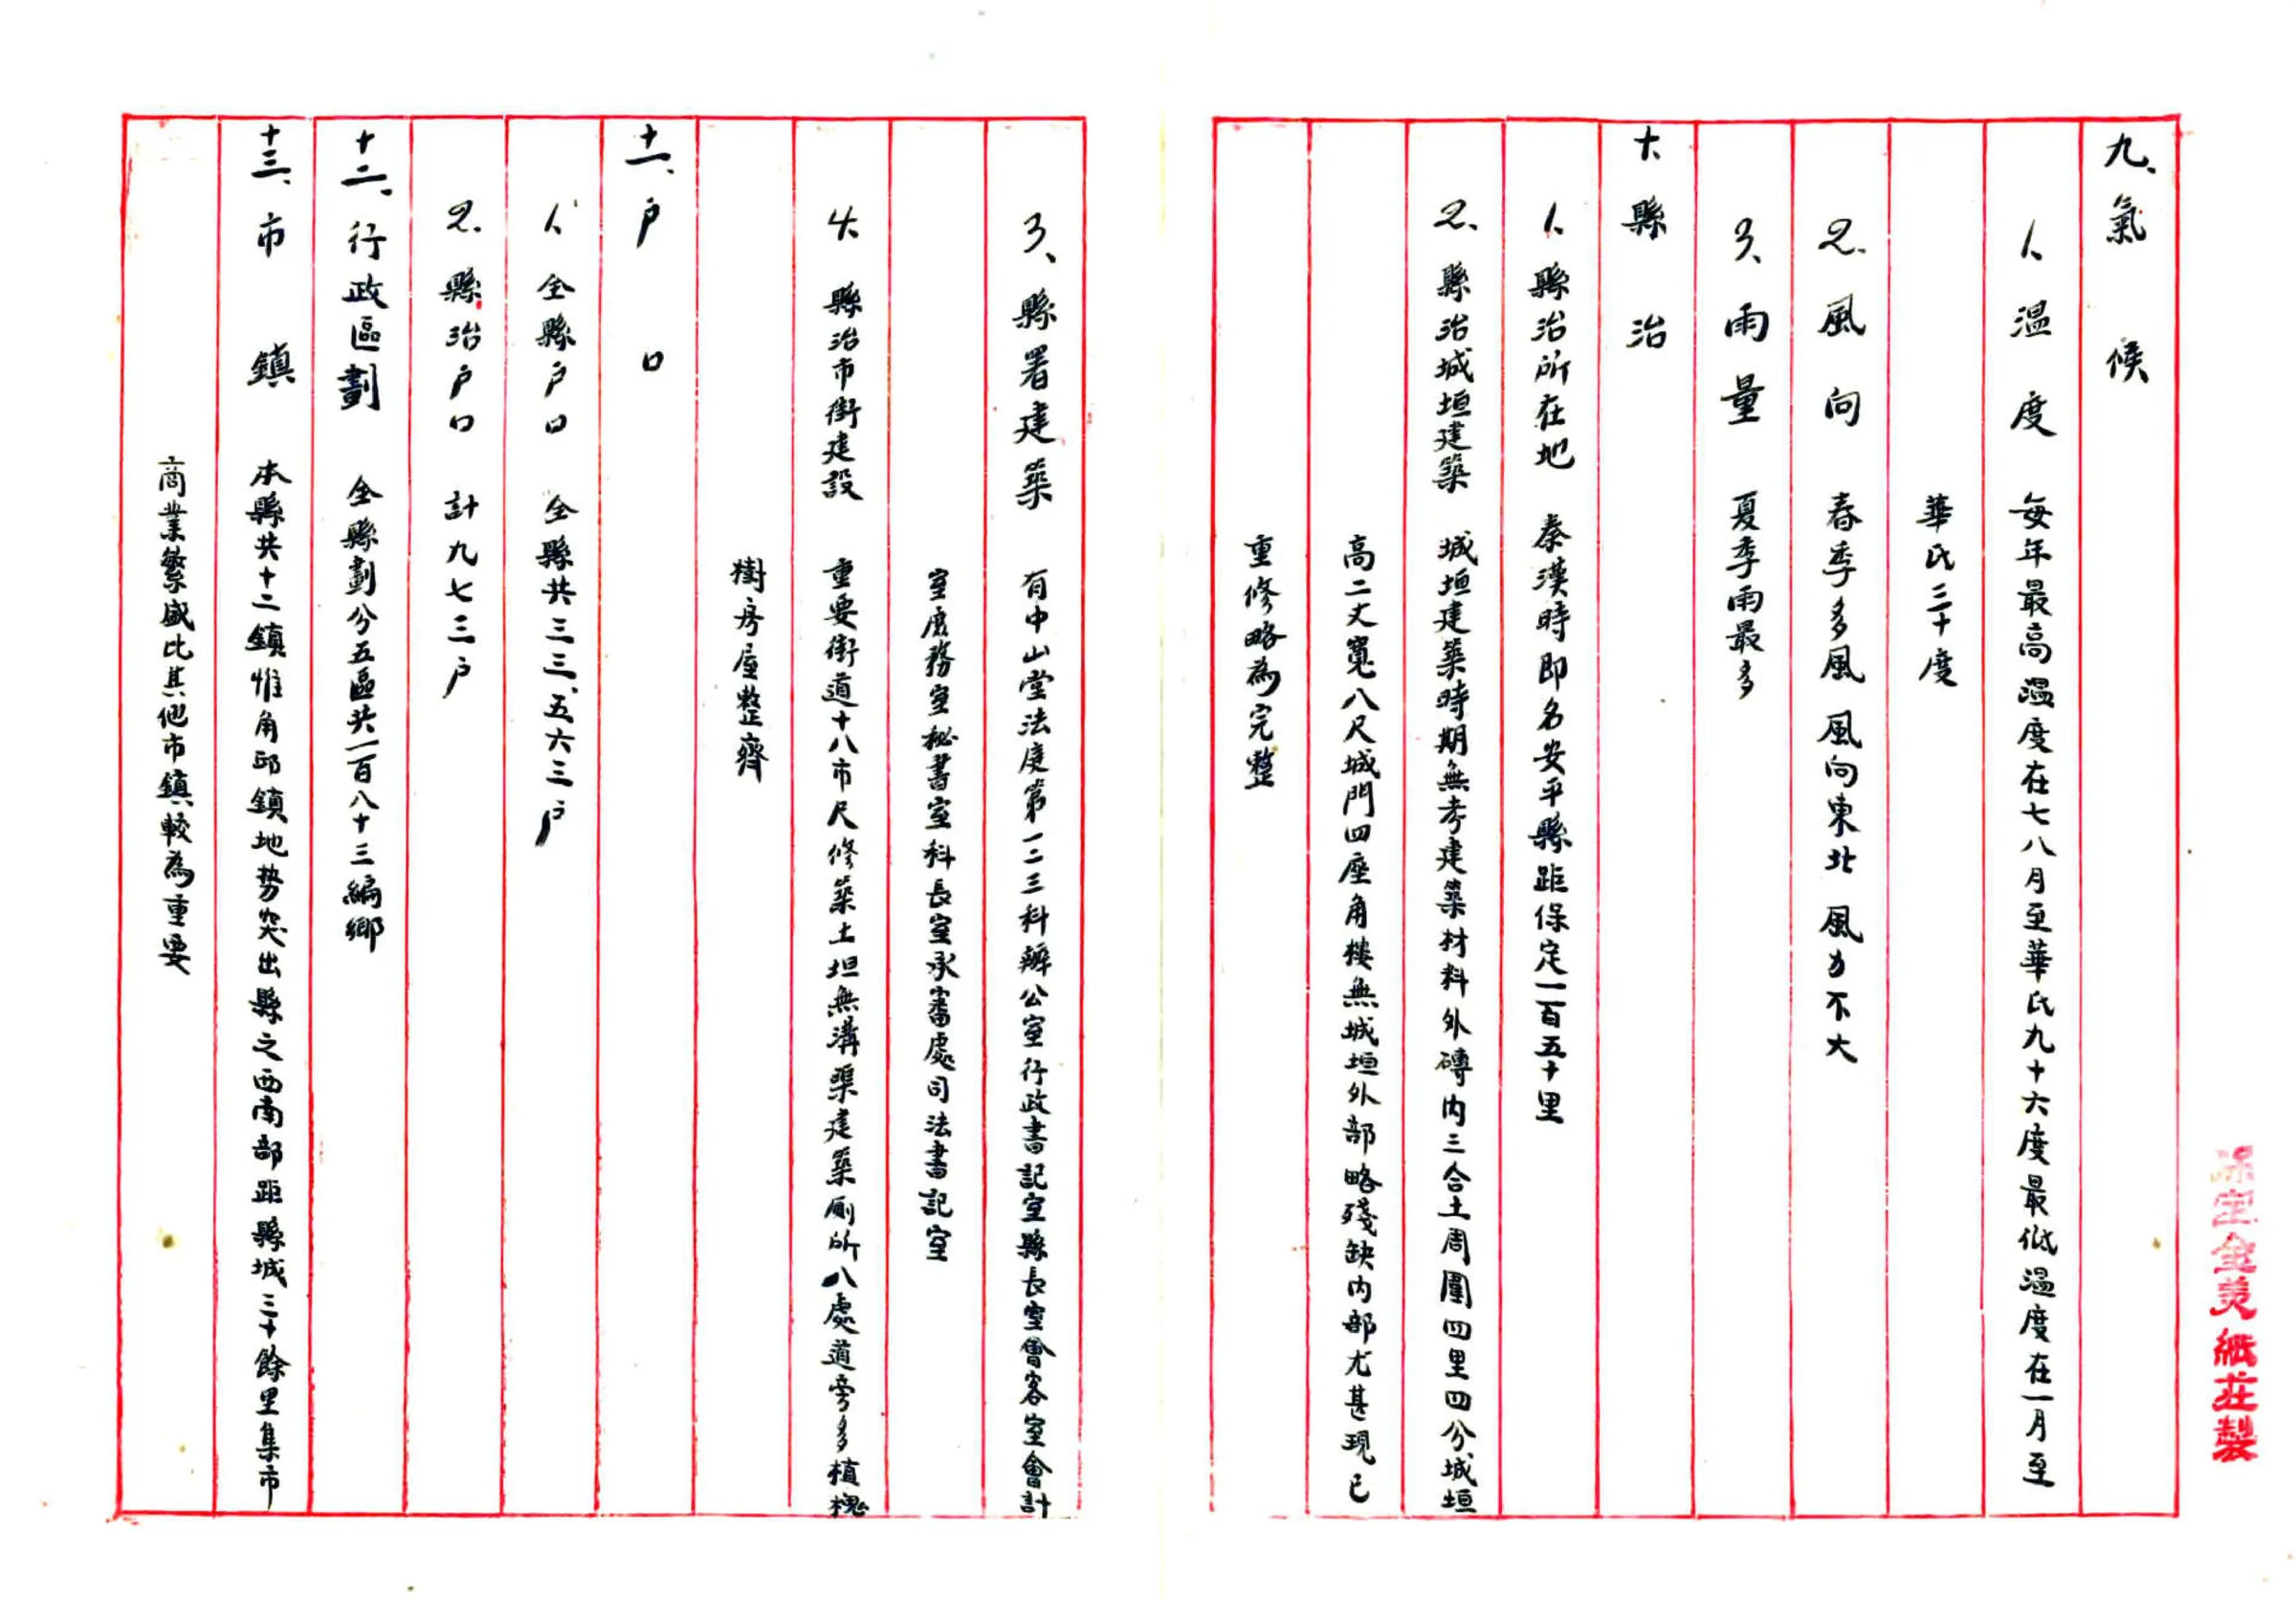 保定金美紙莊製
九、氣候
1、温度 每年最高温度在七八月至華氏九十六度最低温度在一月至
華氏三十度
2、風向 春季多風風向東北風力不大
3、雨量 夏季雨最多
十、縣治
1、縣治所在地 秦漢時即名安平縣距保定一百五十里
2、縣治城垣建築 城垣建築時期無考建築材料外磚内三合土周圍四里四分城垣
高二丈寬八尺城門四座角楼無城垣外部略殘缺内部尤甚現已
重修略為完整
3、縣署建築 有中山堂法庭第一二三科辦公室行政書記室縣長室會客室會計
室庶務室秘書室科長室承審處司法書記室
4、縣治市街建設 重要街道十八市尺修築土坦無溝渠建築厠所八處道旁多植槐
樹房屋整齊
十一、户口
1、全縣户口 全縣共三三、五六三户
2、縣治户口 計九七三户
十二、行政區劃 全縣劃分五區共一百八十三編鄉
十三、市鎮 本縣共十二鎮惟角邱鎮地势突出縣之西南部距縣城三十餘里集市
商業繁盛比其他市鎮較為重要